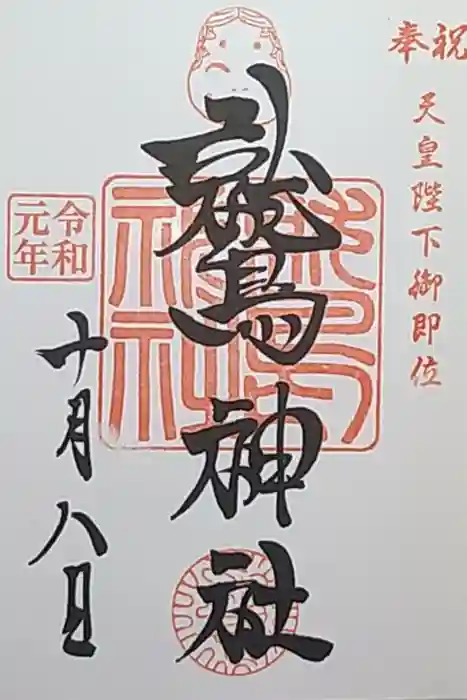 奉祝
天皇陛下御即位
鷲神社
令和
元年
十月八日